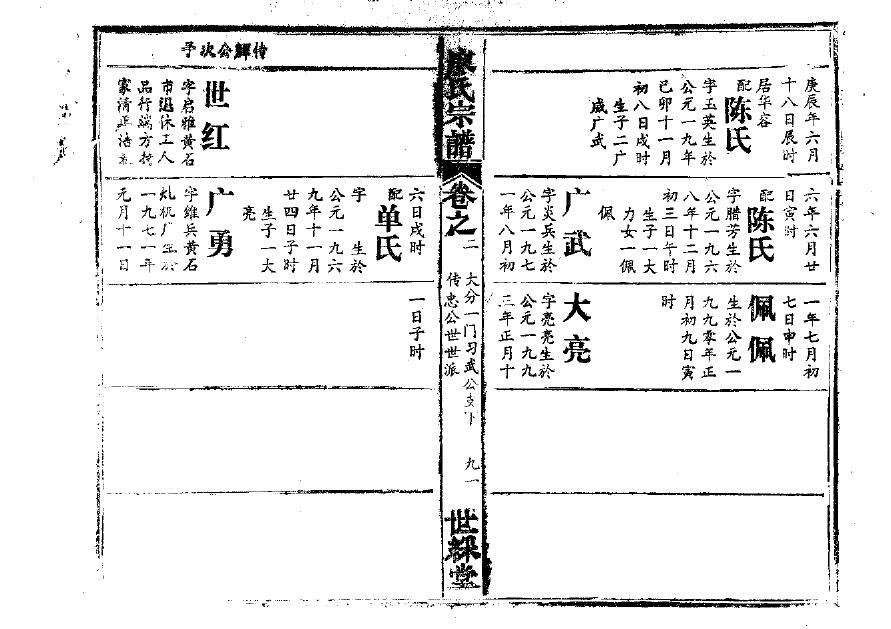 庚辰年六月
十八日辰时
居华容
配陈氏
字玉英生於
公元一九年
己卯十一月
初八日戌时
生子二广
威广武
六年六月廿
日寅时
配陈氏
字腊芳生於
公元一九六
八年十二月
初三日午时
生子一大
力女一佩
佩
广武
字炎兵生於
公元一九七
一年八月初
一年七月初
七日申时
佩佩
生於公元一
九九零年正
月初九日寅
时
大亮
字亮亮生於
公元一九九
三年正月十
廖氏宗譜
卷之二
大分一门习武公支下
传忠公世世派
九一
世綵堂
传鲜公次子
世红
字启雅黄石
市退休工人
品行端方持
家清正洁
六日戌时
配单氏
字 生於
公元一九六
九年十一月
廿四日子时
生子一大
亮
广勇
字维兵黄石
机厂生於
一九七一年
元月十一日
一日子时